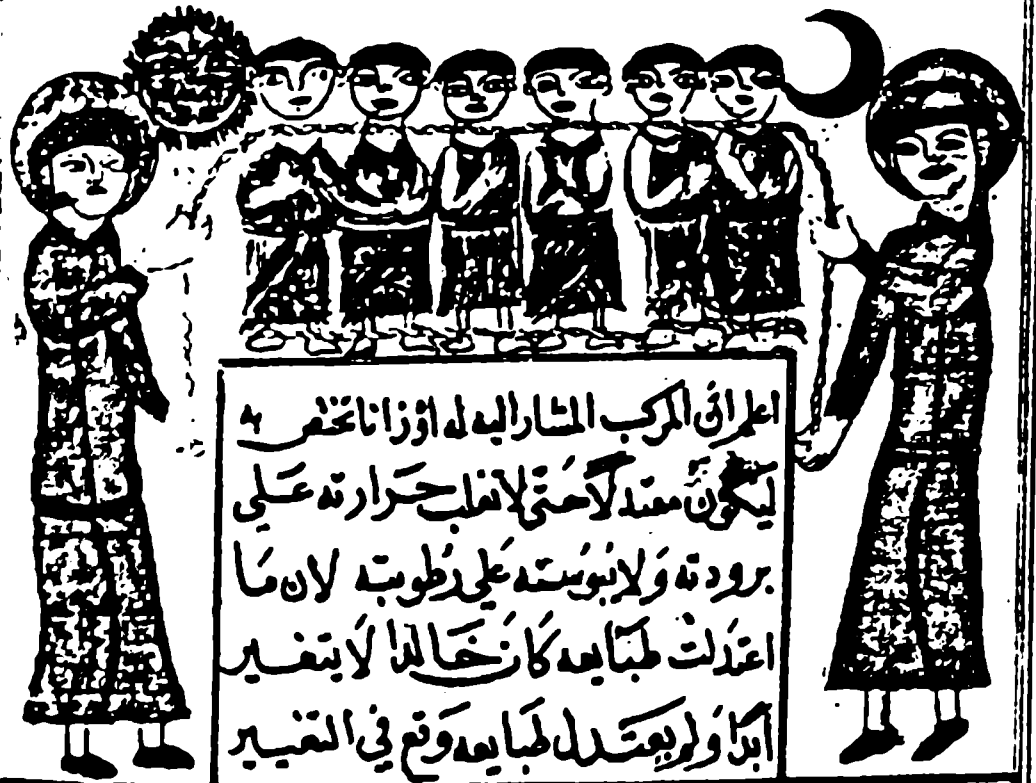 اعلم ان المركب المشار اليه له اوزانا تختص به
ليكون معتدلا حتى لا تغلب حرارته على
برودته ولا يبوسته على رطوبته لان ما
اعتدلت طبايعه كان خالدا لا يتغير
ابدا ولو يعتدل طبايعه وقع في التغيير